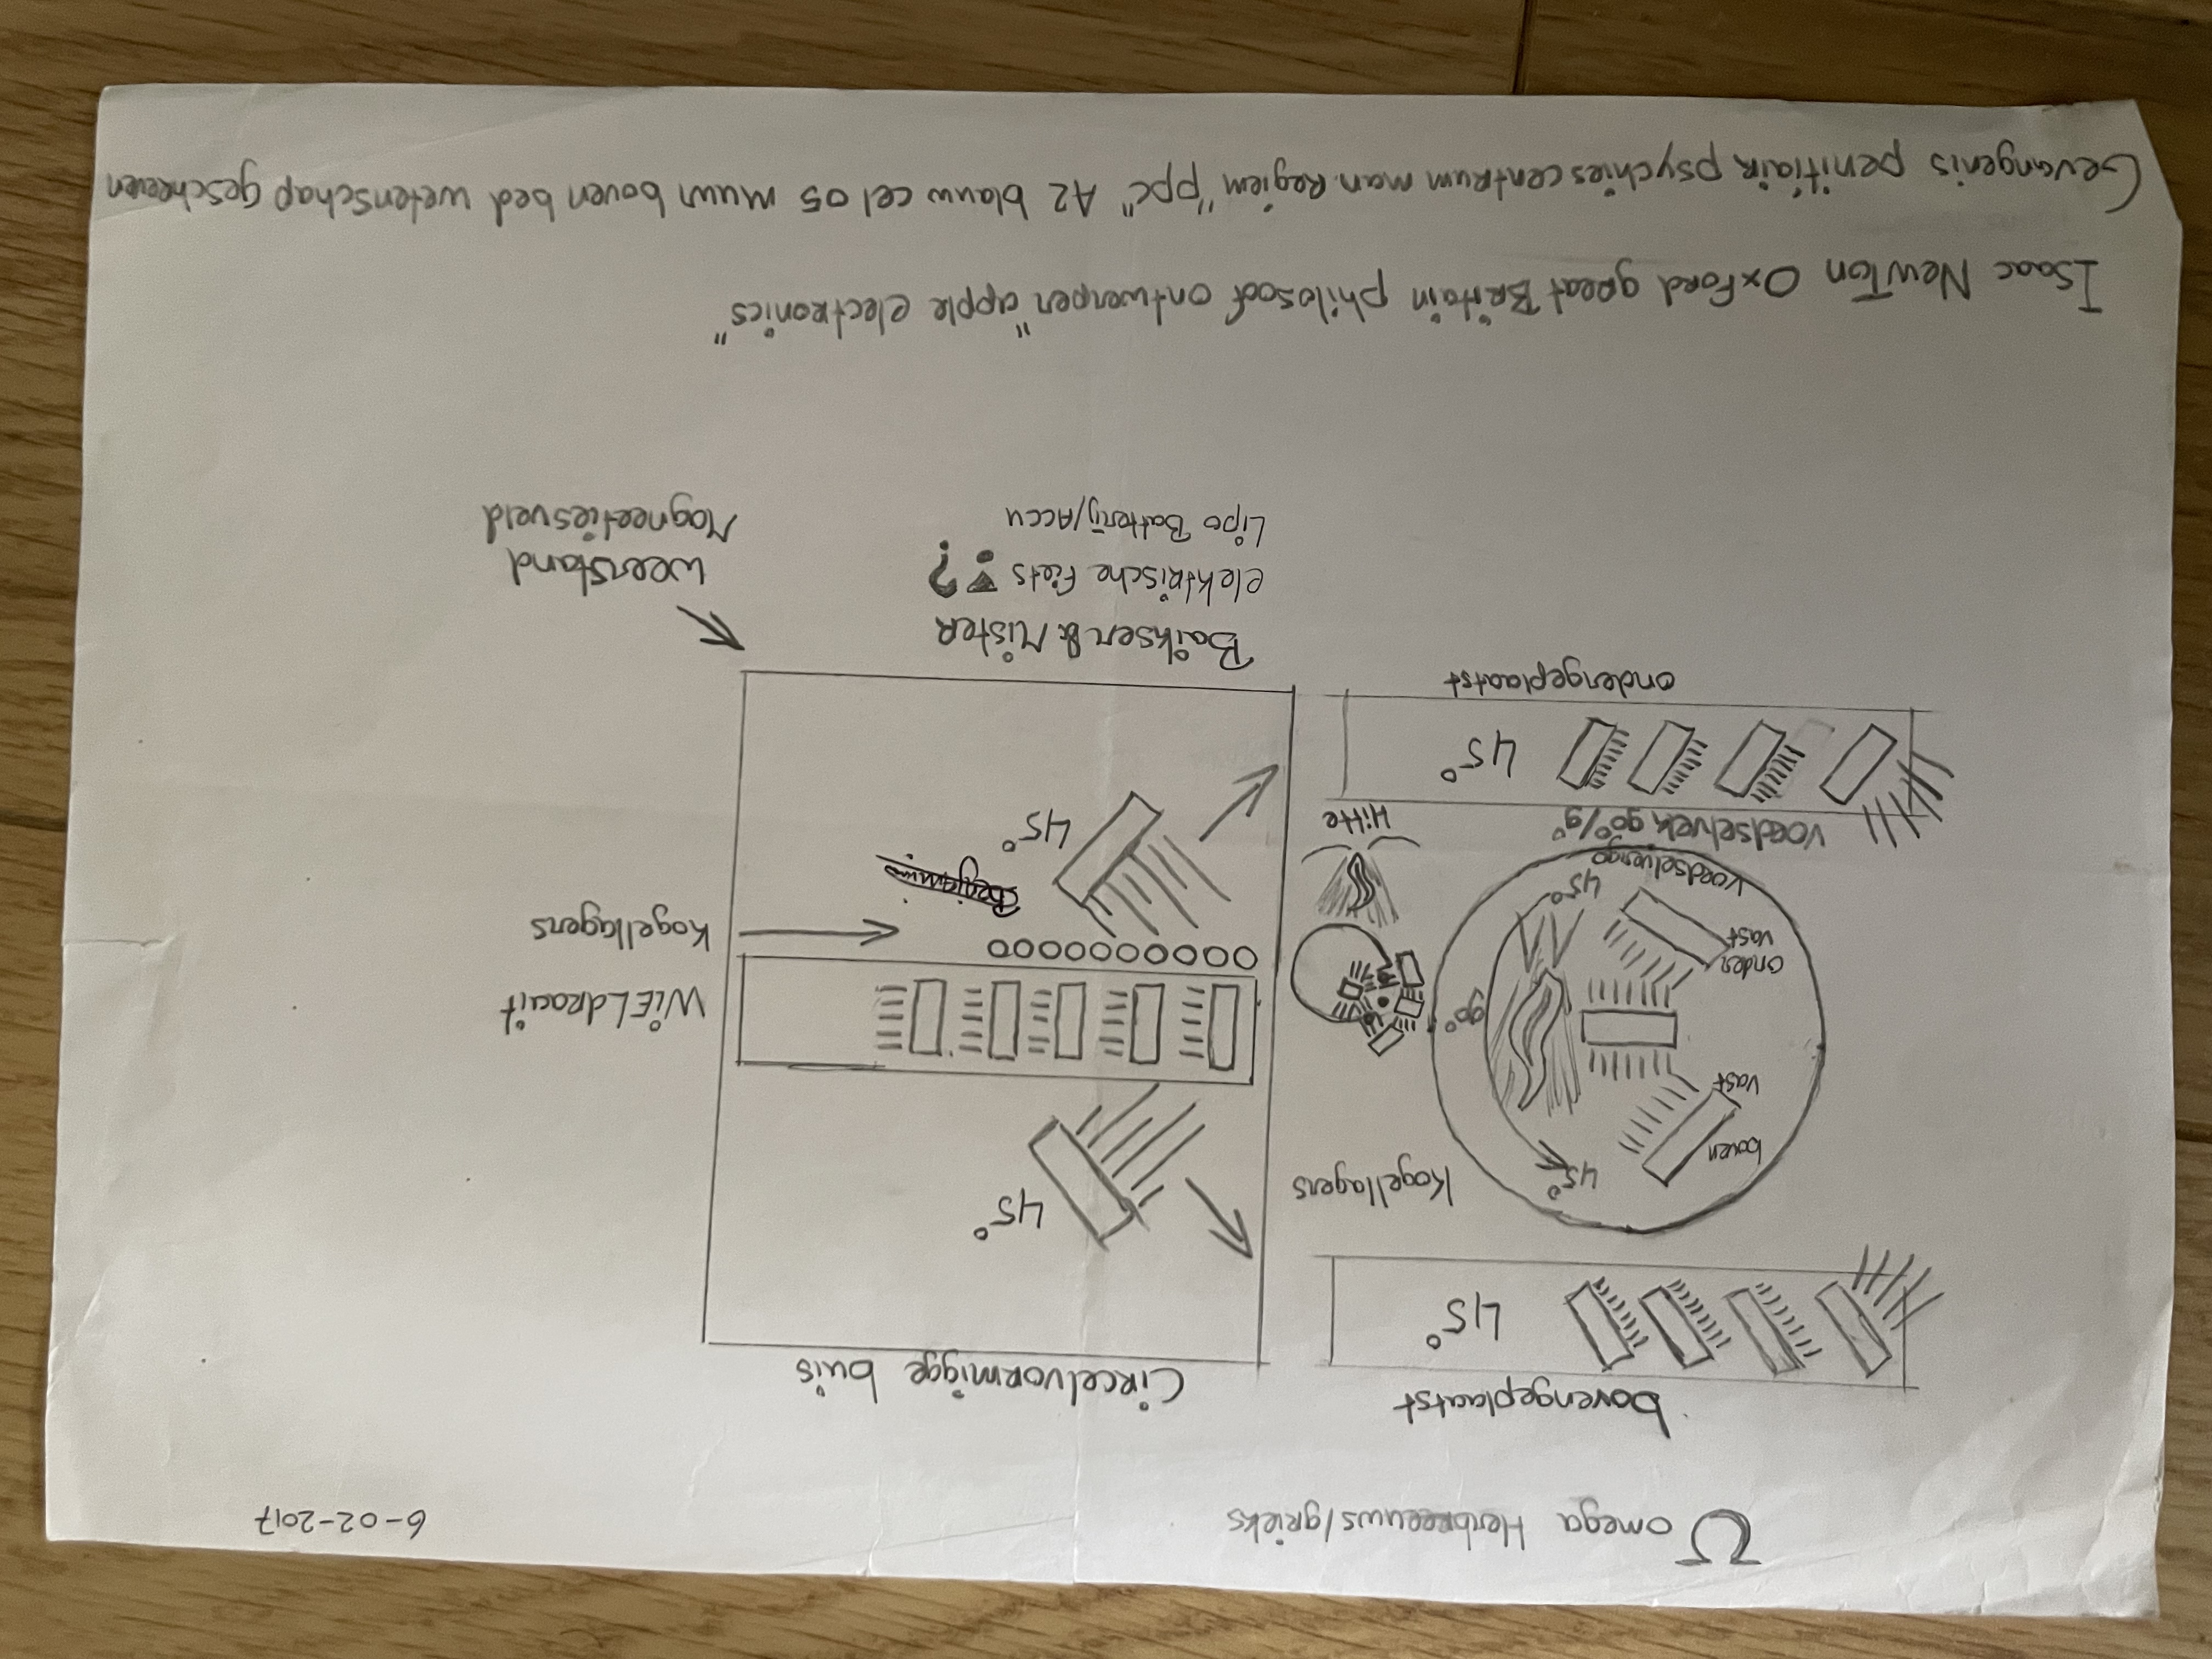 Ω omega Herbreeuws/grieks
6-02-2017
bovengeplaatst
45°
Circelvormigge buis
45°
Kogellagers
boven
vast
45°
90°
onder
vast
45°
voedselvergo
WIELdraait
Kogellagers
45°
Hitte
voedselverk 90°/9°
45°
ondergeplaatst
Baiksen & Mister
elektrische Fiets ?
Lipo Batterij/Accu
weerstand
Magneetiesveld
Isaac NewTon Oxford great Brittain philosoof ontwerper "apple electronics"
Gevangenis penitiair psychies centrum man. Regiem "ppc" A2 blauw cel 05 muur boven bed wetenschap geschreeven